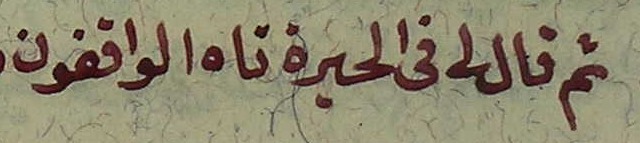 ثم قال لى فى الحيرة تاه الواقفون